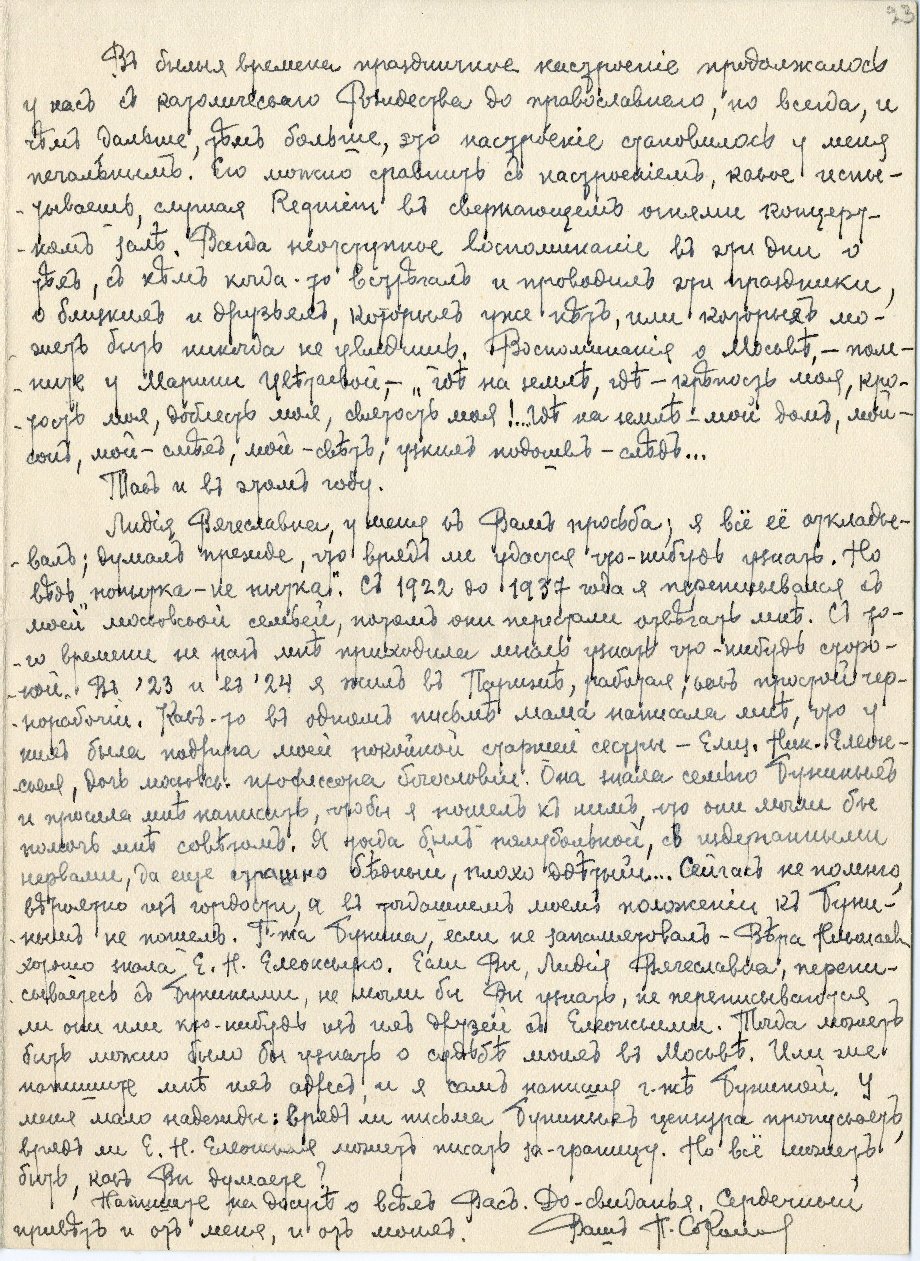 23
Въ былыя времена праздничное настроеніе продолжалось
у насъ съ католическаго Рождества до православнаго, но всегда, и
чѣмъ дальше, тѣмъ больше, это настроеніе становилось у меня
печальнымъ. Его можно сравнить съ настроеніемъ, какое испы-
-тываешь, слушая Requiem въ сверкающемъ огнями концерт-
-номъ залѣ. Всегда неотступное воспоминаніе въ эти дни о
тѣхъ, съ кѣмъ когда-то встрѣчалъ и проводилъ эти праздники,
о близкихъ и друзьяхъ, которыхъ уже нѣтъ, или которыхъ мо-
-жетъ быть никогда не увидишь. Воспоминанія о Москвѣ, – пом-
-ните у Марины Цвѣтаевой, – „гдѣ на землѣ, гдѣ – крѣпость моя, кро-
-тость моя, доблесть моя, святость моя!... Гдѣ на землѣ – мой домъ, мой –
-сонъ, мой – смѣхъ, мой – свѣтъ, узкихъ подошвъ – слѣдъ...
Такъ и въ этомъ году.
Лидія Вячеславна, у меня къ Вамъ просьба; я всё её откладъ-
-валъ; думалъ прежде, что врядъ ли удастся что-нибудь узнать. Но
вѣдь „попытка – не пытка". Съ 1922 до 1937 года я переписывался съ
моей московской семьей, потомъ они перестали отвѣчать мнѣ. Съ то-
-го времени не разъ мнѣ приходила мысль узнать что-нибудь сторо-
-ной. Въ '23 и въ '24 я жилъ въ Парижѣ, работая, какъ простой чер-
-норабочій. Какъ-то въ одномъ письмѣ мама написала мнѣ, что у
нихъ была подруга моей покойной старшей сестры – Елиз. Ник. Елеон-
-ская, дочь московск. профессора богословія. Она знала семью Буниныхъ
и просила мнѣ написать, чтобы я пошелъ къ нимъ, что они могли бы
помочь мнѣ совѣтомъ. Я тогда былъ полубольной, съ издерганными
нервами, да еще страшно бѣдный, плохо одѣтый... Сейчасъ не помню,
вѣроятно изъ гордости, я въ тогдашнемъ моемъ положеніи къ Буни-
-нымъ не пошелъ. Г-жа Бунина, если не запамятовалъ – Вѣра Николаевн
хорошо знала Е. Н. Елеонскую. Если Вы, Лидія Вячеславна, перепи-
-сываетесь съ Буниными, не могли бы Вы узнать, не переписываются
ли они или кто-нибудь изъ ихъ друзей съ Елеонскими. Тогда можетъ
быть можно было бы узнать о судьбѣ моихъ въ Москвѣ. Или же
напишите мнѣ ихъ адресъ, и я самъ напишу г-жѣ Буниной. У
меня мало надежды: врядъ ли письма Буниныхъ цензура пропускаетъ,
врядъ ли Е. Н. Елеонская можетъ писать за-границу. Но всё можетъ
быть, какъ Вы думаете?
Напишите на досугѣ о всѣхъ Васъ. До-свиданья. Сердечный
привѣтъ и отъ меня, и отъ моихъ. Вашъ